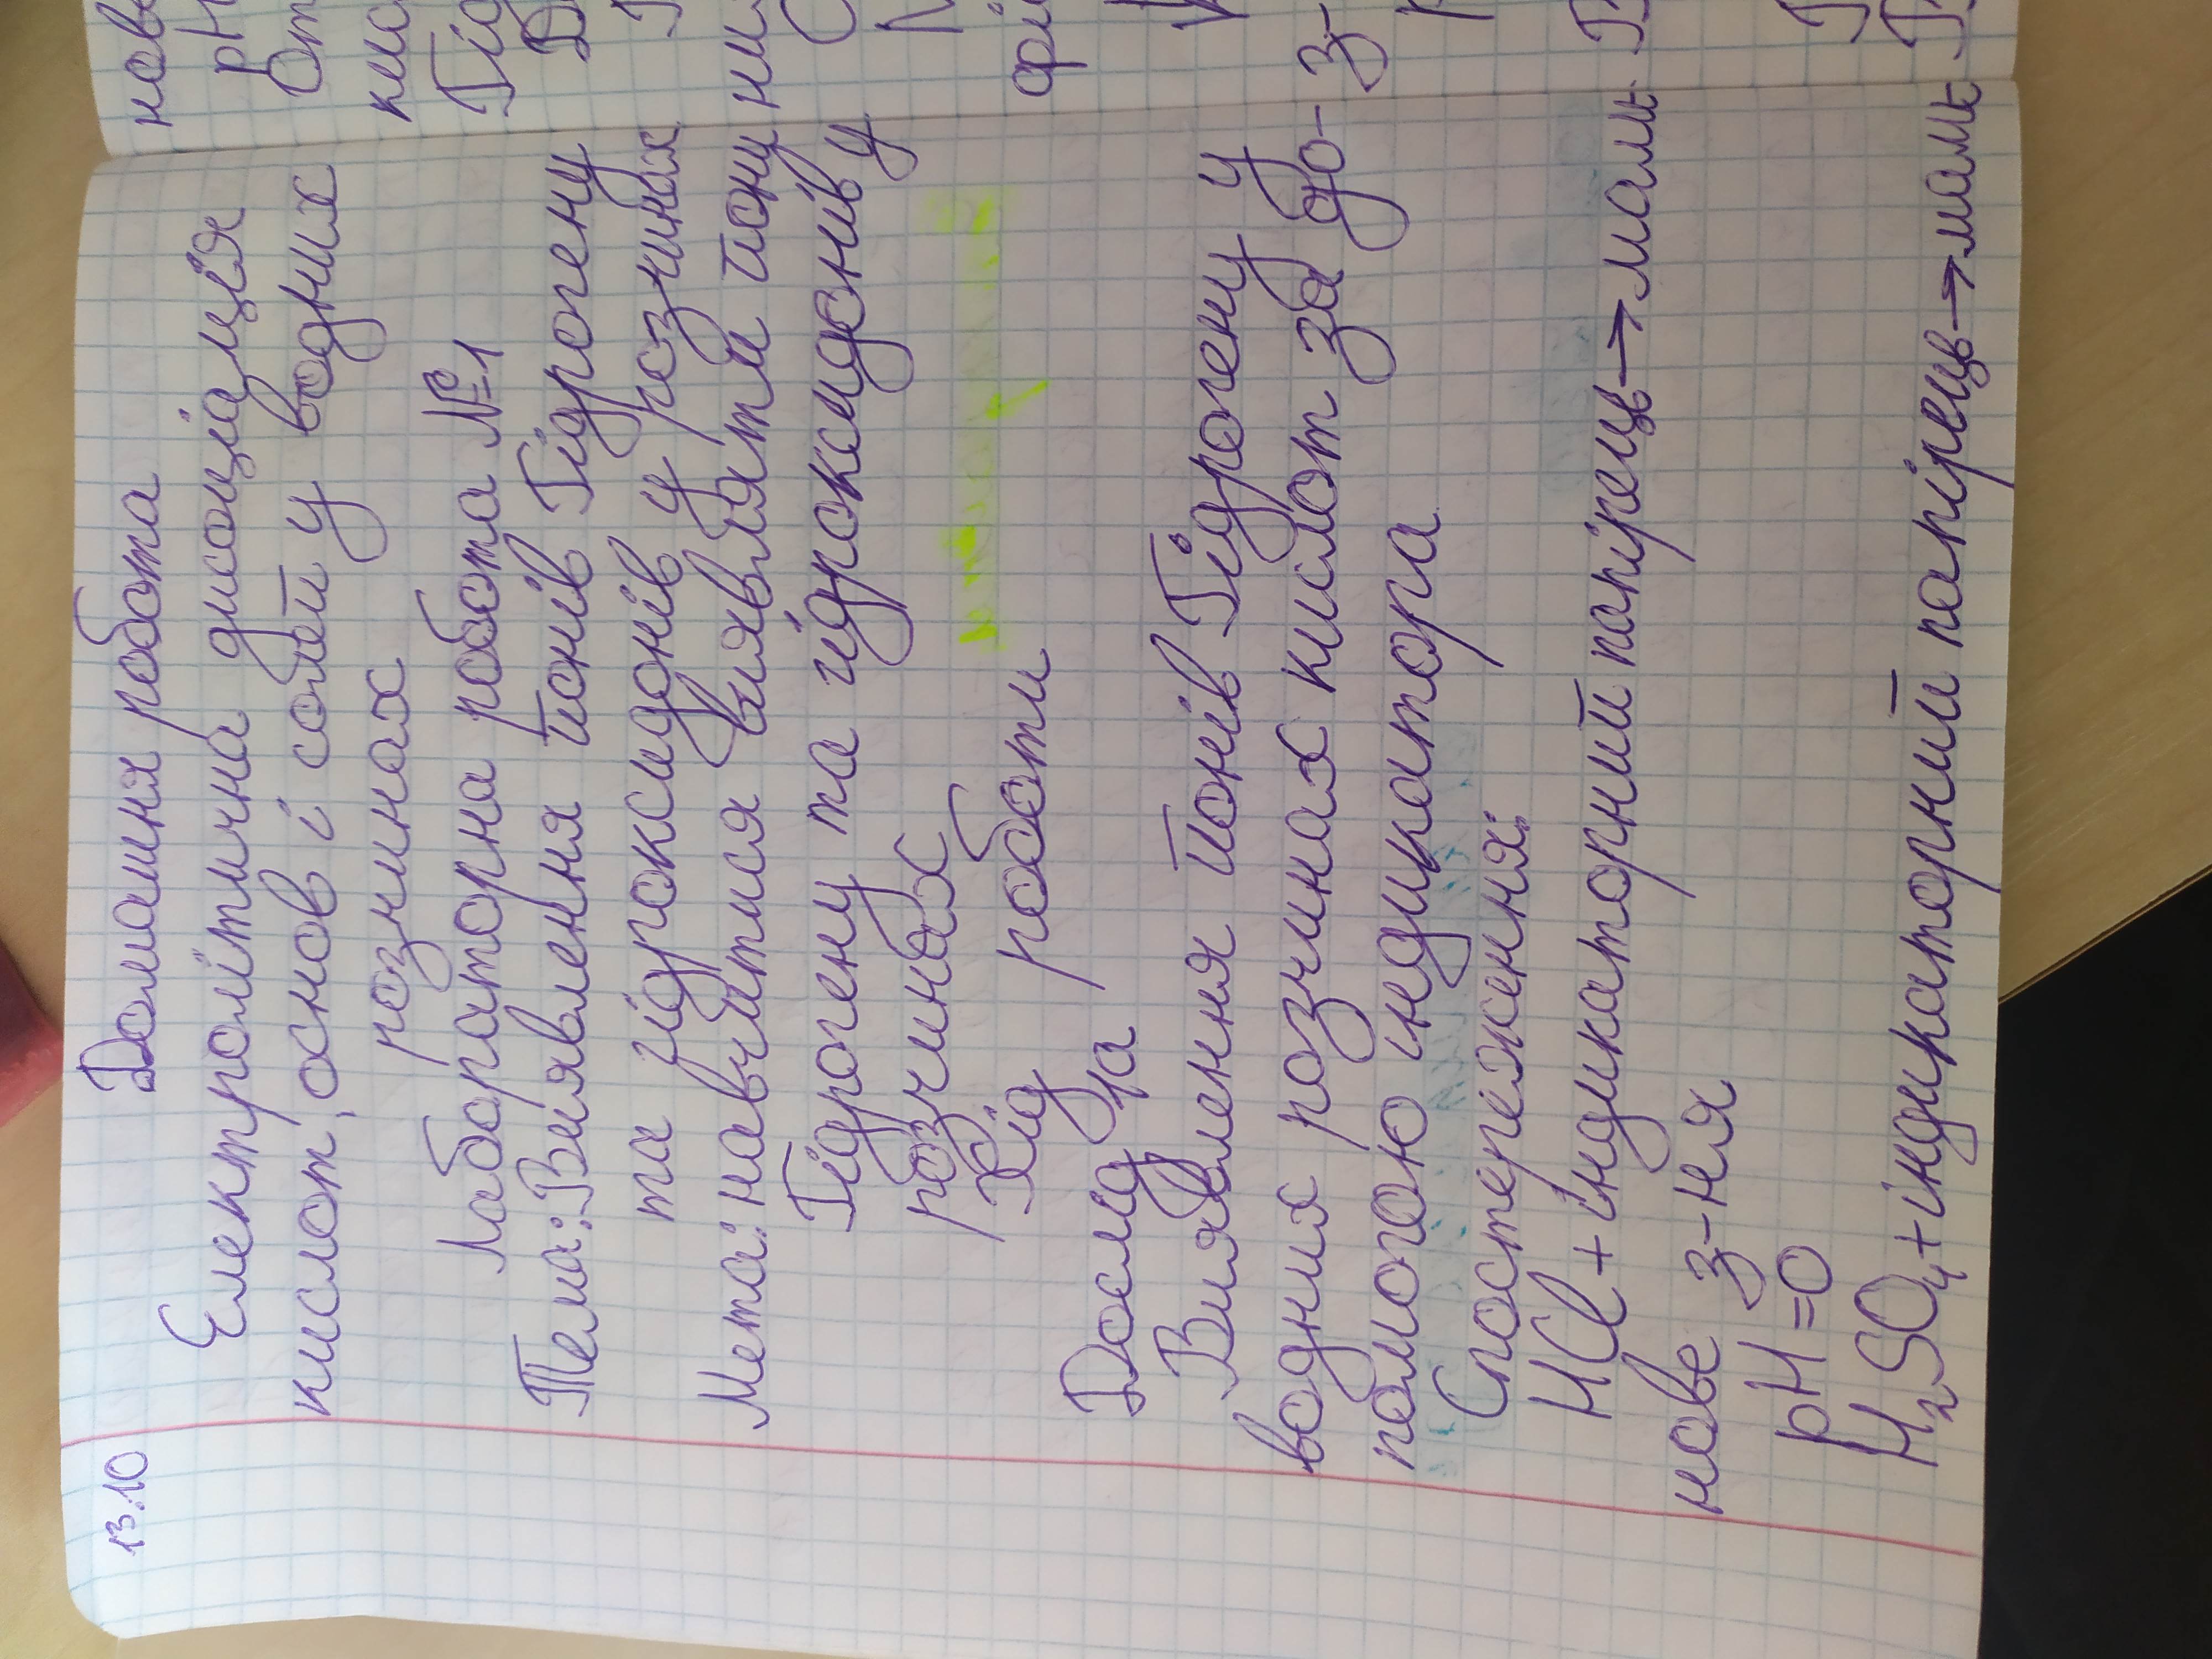 13.10
Домашня робота
Електролітична дисоціація
кислот, основ і солей у водних
розчинах
Лабораторна робота №1
Тема: Виявлення йонів Гідрогену
та гідроксидонів у розчинах
Мета: навчитися виявляти йони
Гідрогену та гідроксидонів у
розчинах
Хід роботи
Дослід 1а
Виявлення йонів Гідрогену у
водних розчинах кислот за до-
помогою індикатора
Спостереження:
HCl + індикаторний папірець → мали-
нове з-ня
pH = 0
H₂SO₄ + індикаторний папірець → мали-
нове
pH
кис